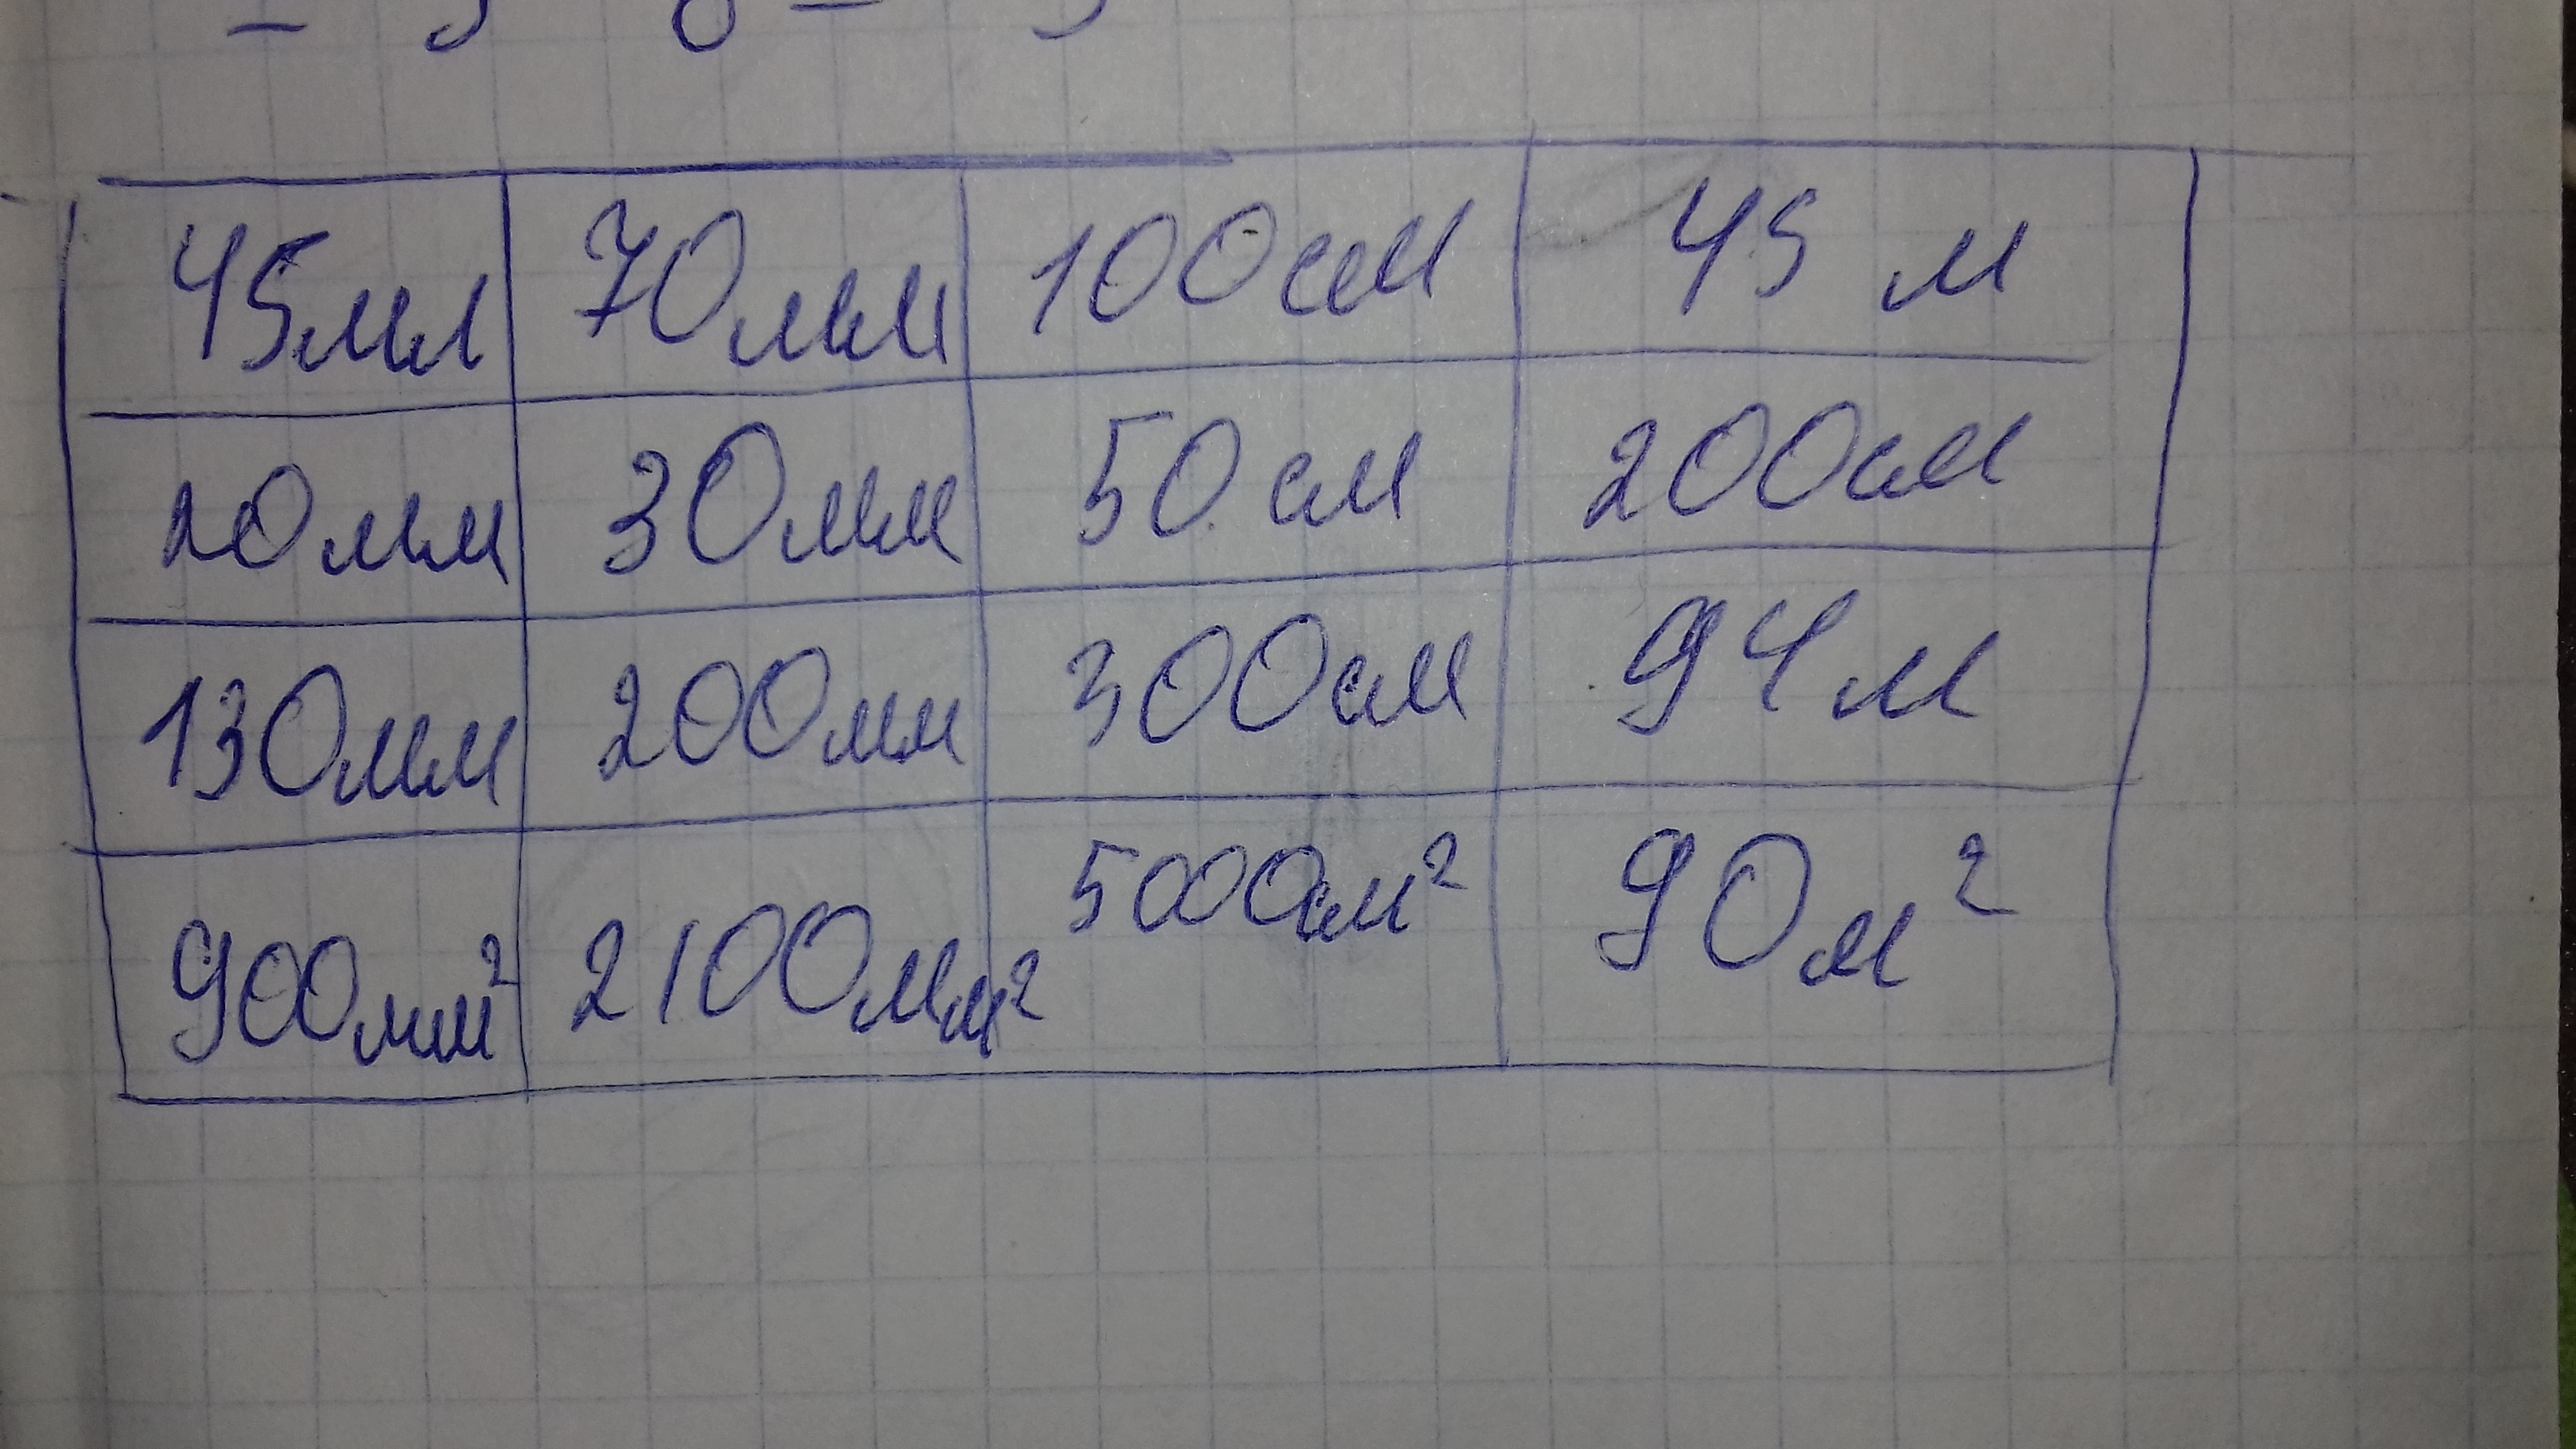 45мм 70мм 100см 45 м
20мм 30мм 50 см 200см
130мм 200мм 300см 94м
900мм² 2100мм² 5000см² 90м²